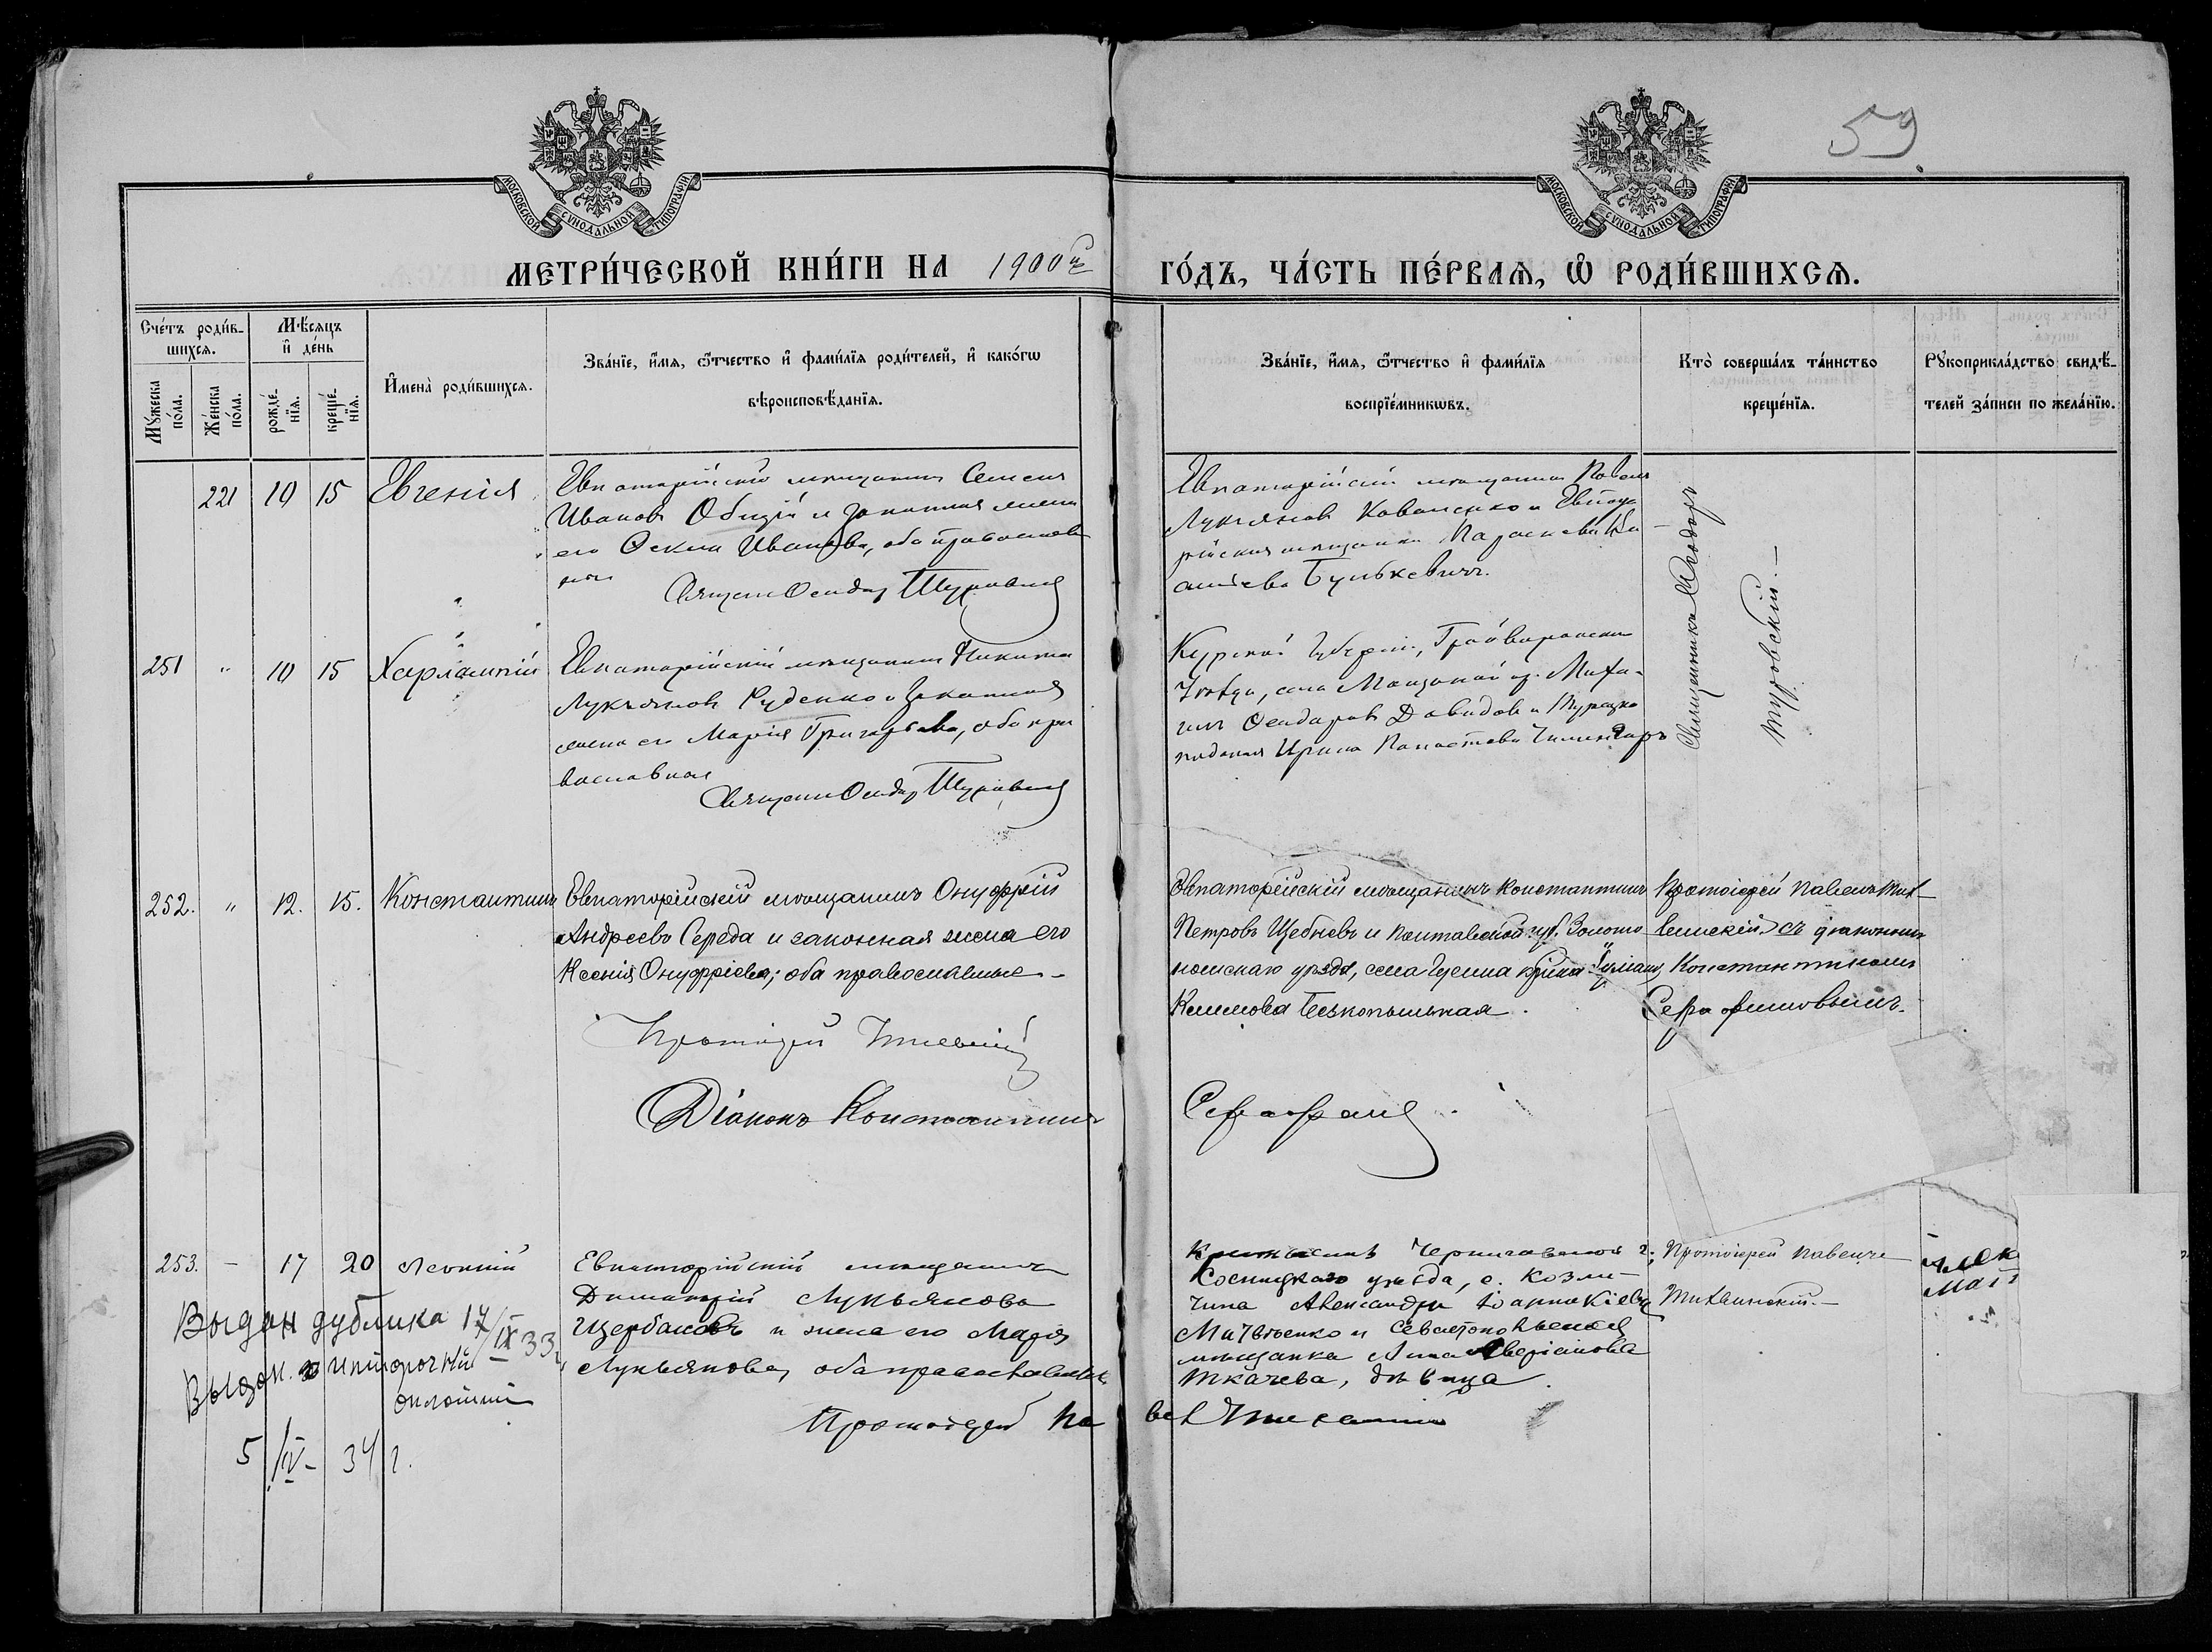 59
МОСКОВСКОЙ СУНОДАЛЬНОЙ ТИПОГРАФІИ
МОСКОВСКОЙ СУНОДАЛЬНОЙ ТИПОГРАФІИ
МЕТРИ́ЧЕСКОЙ КНИ́ГИ НА 1900й ГО́ДЪ, ЧА́СТЬ ПЕ́РВАѦ, Ѡ҆ РОДИ́ВШИХСѦ.
Сче́тъ роди́в-
шихсѧ.
Мѣ́сѧцъ
и҆ де́нь
Мꙋ́жеска по́ла.
Же́нска по́ла.
рожде́нїѧ.
креще́нїѧ.
И҆мена̀ роди́вшихсѧ.
Зва́нїе, и҆́мѧ, ѻ҆́тчество и҆ фами́лїѧ роди́телей, и҆ како́гѡ
вѣроисповѣ́данїѧ.
Зва́нїе, и҆́мѧ, ѻ҆́тчество и҆ фами́лїѧ
воспрїе́мникѡвъ.
Кто̀ соверша́лъ та́инство
креще́нїѧ.
Рꙋкоприкла́дство свидѣ́-
телей за́писи по жела́нїю.
221 10 15 Евгенія
Евпаторійскій мѣщанинъ Семенъ
Ивановъ Общій и законная жена
его Ѳекла Иванова, оба православ
ные
Священ Ѳеодоръ Туровскій
Евпаторійскій мѣщанинъ Павелъ
Лукьяновъ Коваленко и Евпато
рійская мѣщанка Параскева
Булькевичъ.
Священникъ Ѳеодоръ
Туровскій.—
251 " 10 15 Харлампій
Евпаторійскій мѣщанинъ Никита
Лукьяновъ Руденко и законная
жена его Марія Григорьева, оба пра
вославная
Священ Ѳеодоръ Туровскій
Курской Губерніи, Грайворонскаго
Уѣзда, села Мощеной кр. Миха-
илъ Ѳеодоровъ Давидовъ и Турецко
поданая Ирина
252. " 12. 15. Константинъ
Евпаторійскій мѣщанинъ Онуфрій
Андреевъ Середа и законная жена его
Ксенія Онуфріева; оба православные —
Протоіерей Тихвинскій
Діаконъ Константинъ
Серафимовъ
Евпаторійскій мѣщанинъ Константинъ
Петровъ Щебневъ и Полтавской губ. Золото
ношскаго уѣзда, села
Климова Безкопыльная.
Протоіерей Павелъ Тих-
винскій съ діакономъ
Константиномъ
Серафимовымъ.
253. — 17 20 Леонтій
Евпаторійскій мѣщанинъ
Димитрій Лукьяновъ
Щербаковъ и жена его Марія
Лукьянова, оба православные
Протоіерей Павелъ Тихвинскій
Крестьянинъ Черниговской г.,
Сосницкаго уѣзда, с. Козли-
чина Александръ Іоанникіевъ
Матвѣенко и Севастопольская
мѣщанка Анна Аверіанова
Ткачева, дѣвица.
Протоіерей Павелъ
Тихвинскій.—
Выдан дублика 17/IX 33 г.
Выдан
5/IV– 34 г.